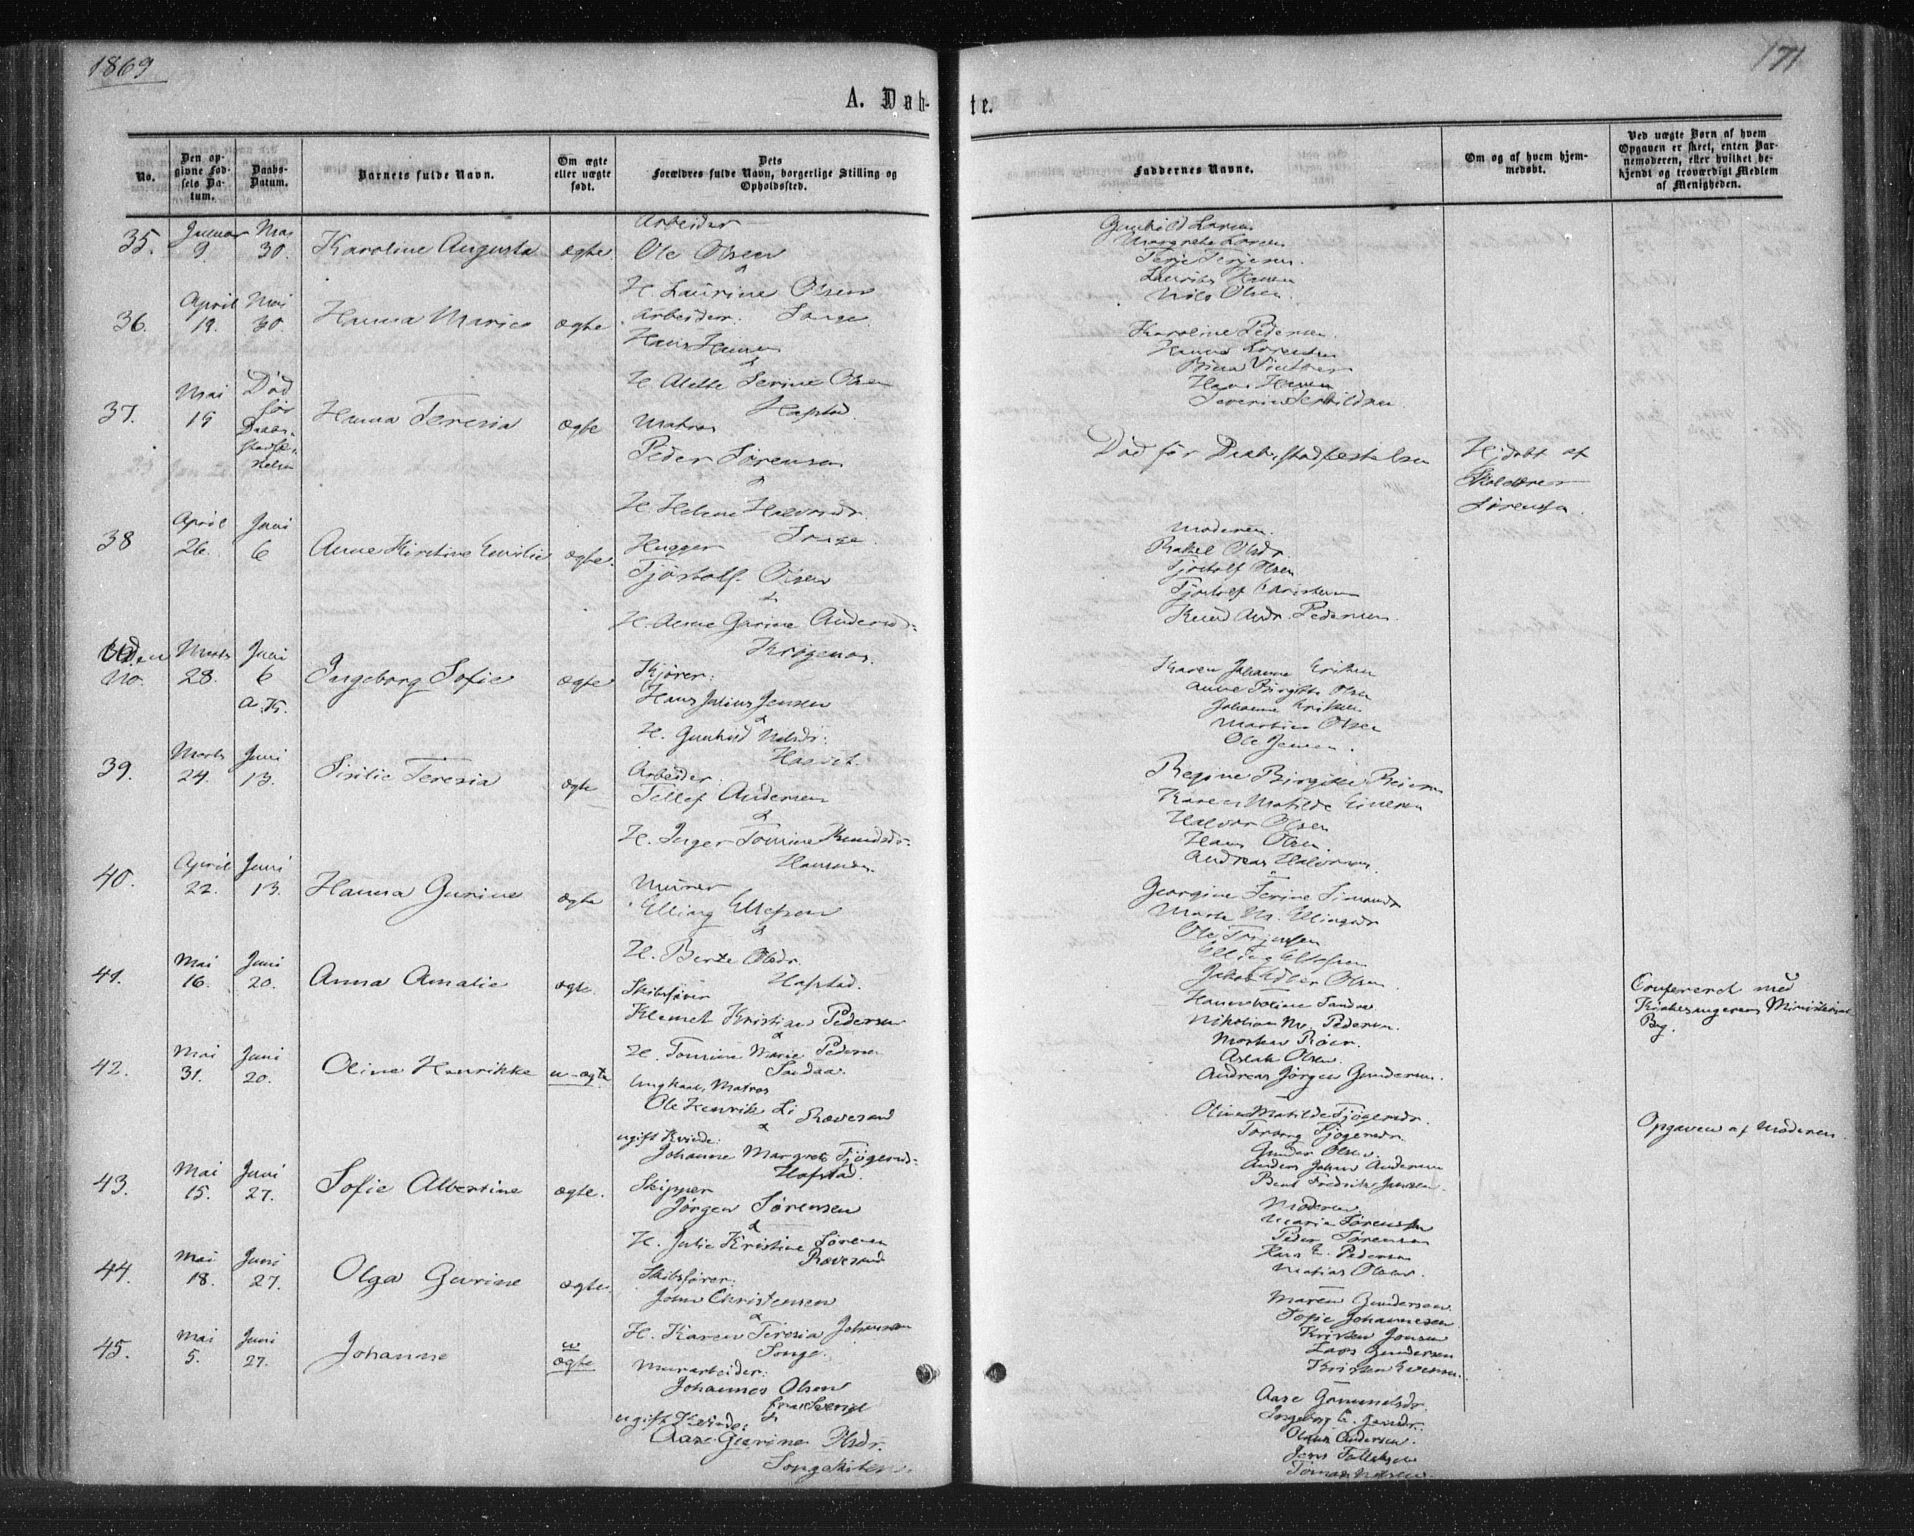 1869
171
A. Døb-
te.
No.
Den op-
givne Fød-
sels Da-
tum.
Daabs-
Datum.
Barnets fulde Navn.
Om ægte
eller uægte
født.
Dets
Forældres fulde Navn, borgerlige Stilling og
Opholdssted.
Faddernes Navne.
Om og af hvem hjem-
medøbt.
Ved uægte Børn af hvem
Opgaven er skeet, enten Bar-
nemoderen, eller hvilket be-
kjendt og troværdigt Medlem
af Menigheden.
35.
Januar
9.
Mai
30.
Karoline Augusta
ægte
Arbeider
Ole Olsen
&
H. Laurine Olsen
Songe.
Gunhild Larsen
Margrethe Larsen
Terje Terjesen.
Laurits Hansen
Nils Olsen.
36.
April
19.
Mai
30.
Hanna Marie
ægte
Arbeider.
Hans Hansen
&
H. Alette Serine Olsen
Hafstad.
Karoline Pedersen
Hanna Lorentsen
Hans Hansen
37.
Mai
19
Død
før
Daabs-
Hanna Teresia
ægte
Matros
Peder Sørensen
&
H. Helene Halvorsdr.
Død før Daabsstadfæstelsen
Hjdøbt af
Skolelærer
Sørensen
38
April
26.
Juni
6
Anne Kirstine Emilie
ægte.
Hugger
Tjøstolf Olsen
&
H. Anne Gurine Andersd.
Krøgenes.
Moderen.
Rakel Olsdr.
Tjøstolf Olsen
Tjøstolf Christensen
Knud Andr. Pedersen.
Uden
No.
Marts
28.
Juni
6
A. K.
Ingeborg Sofie
ægte
Kjører.
Hans Julius Jensen
&
H. Gunhild Nilsdr.
Karen Johanne Eriksen
Anne Birgitte Olsen
Johanne Eriksen
Martin Olsen
Ole Jensen.
39.
Marts
24.
Juni
13.
Sisilie Teresia
ægte
Arbeider.
Tellef Andersen
&
H. Inger Tomine Knudsdr.
Regine Birgitte
Karen Matilde
Halvor Olsen
Hans Olsen.
Andreas Halvorsen.
40.
April
22.
Juni
13.
Hanna Gurine
ægte
Murer
Elling Ellefsen
&
H. Berte Olsdr.
Hafstad.
Georgine Serine
Marte M. Ellingsdr
Ole Terjesen
Elling Ellefsen
Jakob Olsen
41.
Mai
16.
Juni
20.
Anna Amalie
ægte.
Skibsfører
Klemet Kristian Pedersen
&
H. Tomine Marie Pedersen
Sandaa.
Nikoline M. Pedersen.
Aslak Olsen.
Andreas Jørgen Gundersen.
Confereret med
Kirkesangerens Ministerial
Bog.
42.
Mai
31.
Juni
20.
Oline Henrikke
u-ægte
Ungkarl, Matros
Ole Henrik Li
Ravesand
&
ugift Kvinde:
Johanne Margrete Tjøgersd.
Hafstad.
Oline Matilde Tjøgersdr.
Torborg Tjøgersdr.
Gunder Olsen.
Anders Johan Andersen
Bent Fredrik Jansen.
Opgaven af Moderen.
43.
Mai
15.
Juni
27.
Sofie Albertine
ægte.
Skipper
Jørgen Sørensen
&
H. Julie Kristine Sørensen
Ravesand
Moderen
Marie Sørensen
Peder Sørensen
Pedersen
Matias Olsen.
44.
Mai
18.
Juni
27.
Olga Gurine
ægte
Skibsfører.
John Christensen
&
H. Karen Teresia Johansen
Songe.
Maren Gundersen.
Sofie Johannesen
Kristen Jonsen
Lars Gundersen
Kristen Evensen.
45.
Mai
5.
Juni
27.
Johanne
u
ægte
Murarbeider.
Johannes Olsen
fra Sverige
&
ugift Kvinde:
Aase Gurine Olsdr.
Aase Gunnulsdr.
Ingeborg
Andersen.
Jens Tallaksen